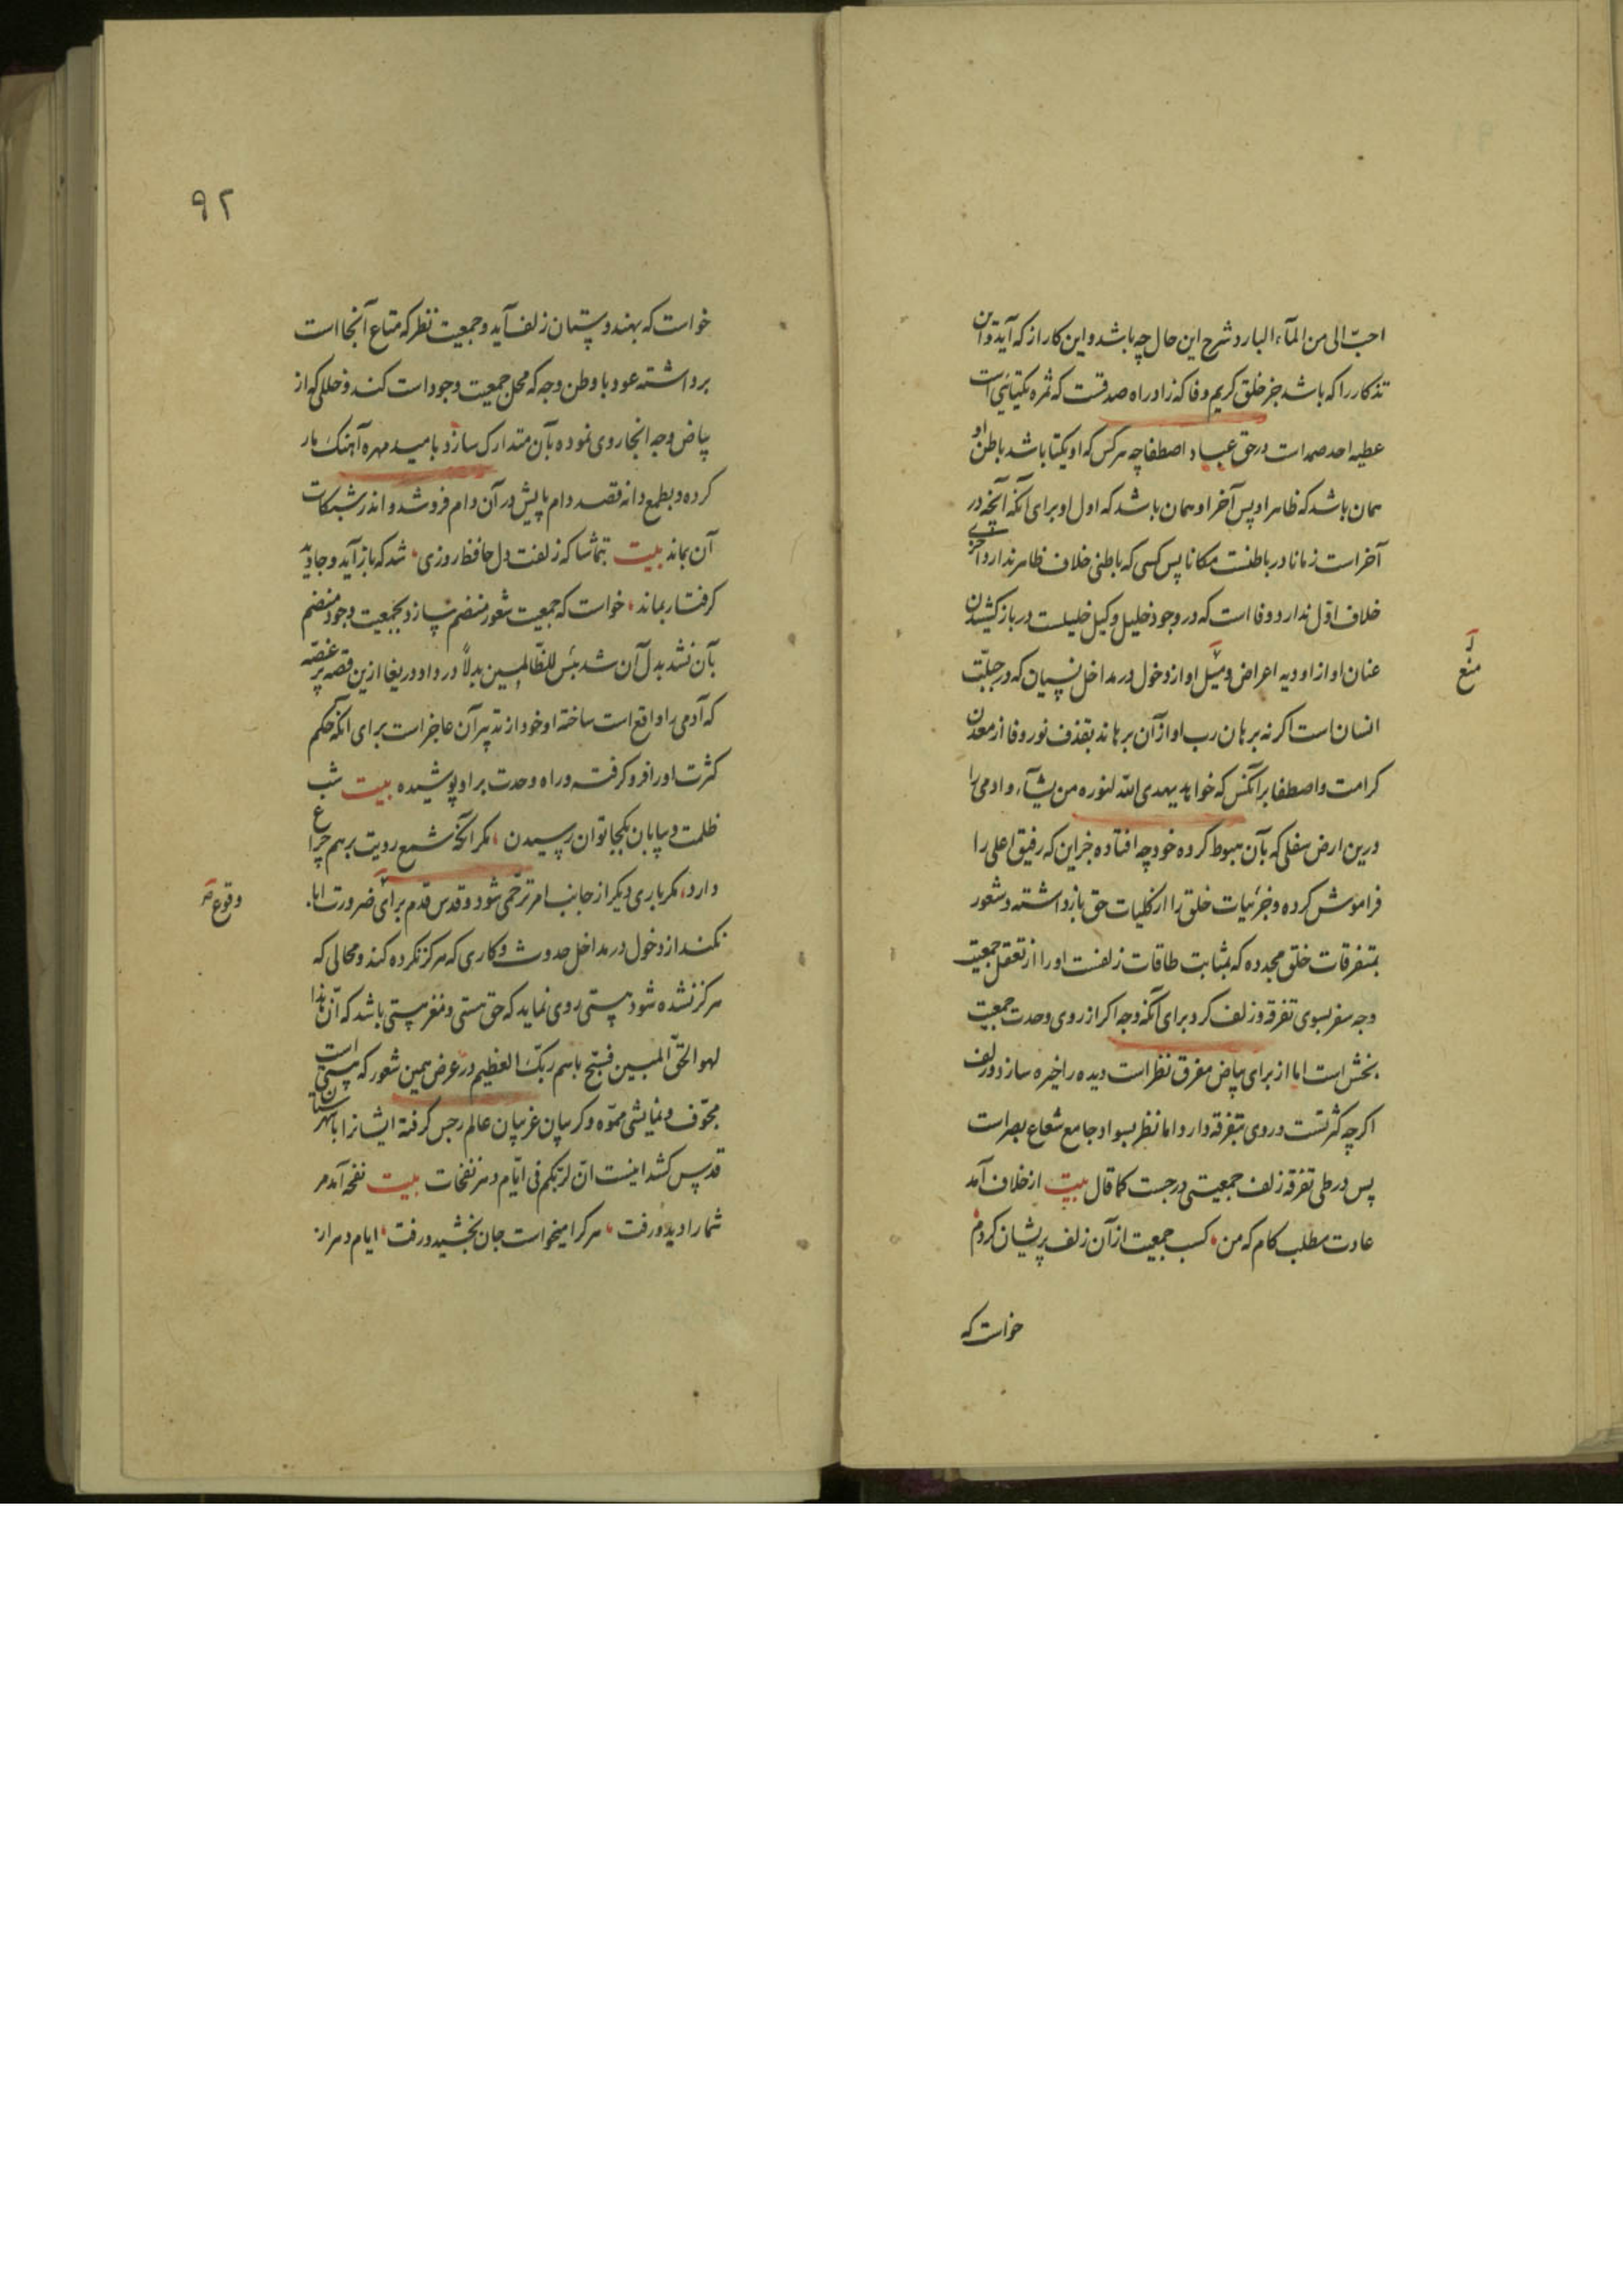 احبّ الی من المآء البارد و شرح این حال چه باشد و این کار از که آید و این
تذکار را که باشد جز خلق کریم وفا که زاد راه صدقست که ثمره یکتایی است
عطیه احد صمد است در حق عباد اصطفا چه هر کس که او یکتا باشد باطن او
همان باشد که ظاهر او پس آخر او همان باشد که اول او برای آنکه آنچه در
آخر است زمانا در باطنست مکانا پس کسی که باطنی خلاف ظاهر ندارد آخری
خلاف اوّل ندارد و وفا است که در وجود خلیل وکیل خلیلست در باز کشیدن
عنان او از اودیه اعراض و میل او از دخول در مداخل نسیان که در جبلّت
منع
انسان است اکر نه برهان رب او از آن برهاند بقذف نور وفا از معدن
کرامت و اصطفا بر آنکس که خواهد یهدی الله لنوره من یشآء و ادمی را
درین ارض سفلی که بآن هبوط کرده خود چه افتاده جز این که رفیق اعلی را
فراموش کرده و جزئیات خلق را از کلیات حق باز داشته و شعور
بمتفرقات خلق مجدده که بمثابت طاقات زلفست او را از تعقل جمعیت
وجه سفر بسوی تفرقه و زلف کرد برای آنکه وجه اکر از روی وحدت جمعیت
بخش است اما از برای بیاض مفرق نظر است دیده را خیره سازد و زلف
اکرچه کثرتست و روی بتفرقه دارد اما نظر بسواد جامع شعاع بصر است
پس در طی تفرقه زلف جمعیتی درجست کما قال بیت از خلاف آمد
عادت مطلب کام که من ، کسب جمعیت از آن زلف پریشان کردم
خواست که
۹۲
خواست که بهندوستان زلف آید و جمعیت نظر که متاع آنجا است
برداشته عود با وطن وجه که محل جمعیت وجود است کند و خللی که از
بیاض وجه انجا روی نموده بآن متدارک سازد بامید مهره آهنک مار
کرده و بطمع دانه قصد دام پایش در آن دام فرو شد و اندر شبکات
آن بماند بیت بتماشا که زلفت دل حافظ روزی ، شد که باز آید و جاوید
کرفتار بماند ، خواست که جمعیت شعور منضم سازد بجمعیت وجود منضم
بآن نشد بدل آن شد بئس للظّالمین بدلاً درد او دریغا ازین قصه پر غصّه
که آدمی را واقع است ساخته او خود از تدبیر آن عاجز است برای انکه حکم
کثرت او را فرو کرفته و راه وحدت بر او پوشیده بیت شب
ظلمت و بیابان بکجا توان رسیدن ، مکر آنکه شمع رویت برهم چراغ
دارد ، مکر باری دیکر از جانب امر ترحّمی شود و قدس قدم برای ضرورت ابا
وقوع
نکند از دخول در مداخل حدوث و کاری که هرکز نکرده کند و محالی که
هرکز نشده شود هستی روی نماید که حق هستی و مغز هستی باشد که انّ هذا
لهو الحقّ المبین فسبّح باسم ربّک العظیم در عرض همین شعور که هستی است
مجوّف و نمایشی مموّه و کریبان غریبان عالم رجس کرفته ایشانرا باشهرستان
قدس کشد اینست انّ لربّکم فی ایّام دهر نفحات بیت نفحه آمد مر
شما را دید و رفت ، هر کرا میخواست جان بخشید و رفت ، ایام دهر از